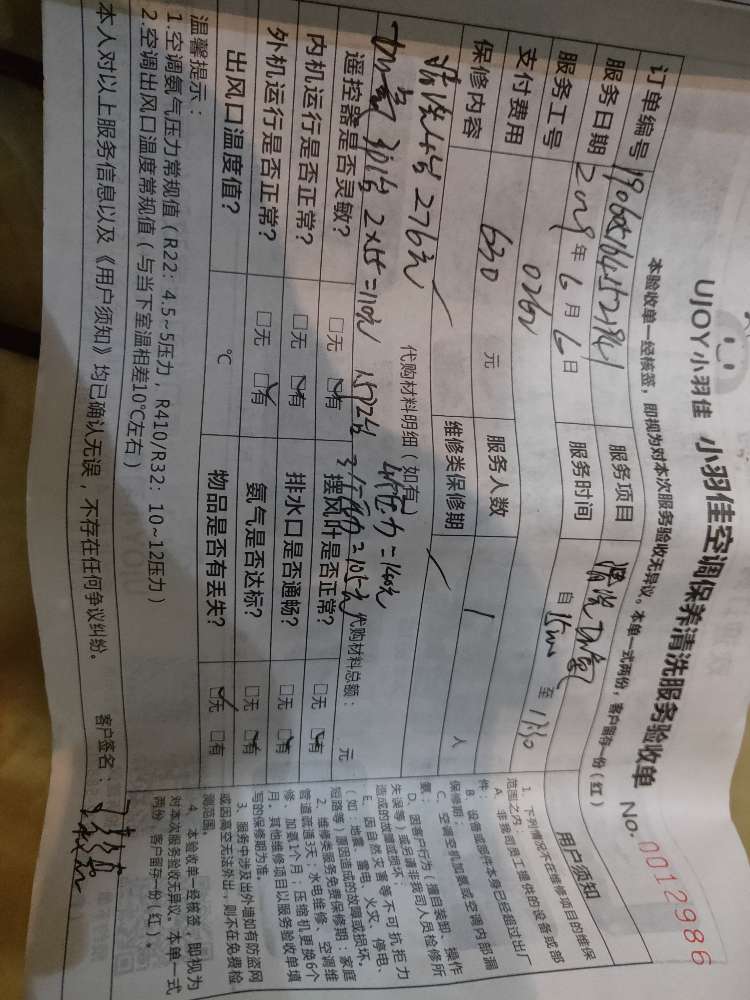 UJOY小羽佳 小羽佳空调保养清洗服务验收单 No. 0012986
本验收单一经核签，即视为对本次服务验收无异议。本单一式两份，客户留存一份(红)
订单编号 服务项目 清洗 加氨
服务日期 2019年6月6日 服务时间 自 至
服务工号 0262
支付费用 630 元 服务人数 1 人
保修内容 维修类保修期
代购材料明细(如有)
清洗 276元
=110元 =140元 =105元
代购材料总额： 元
遥控器是否灵敏？ □无 □有 摆风叶是否正常？ □无 □有
内机运行是否正常？ □无 □有 排水口是否通畅？ □无 □有
外机运行是否正常？ □无 □有 氨气是否达标？ □无 □有
出风口温度值？ ℃ 物品是否有丢失？ □无 □有
温馨提示：
1.空调氨气压力常规值(R22：4.5~5压力，R410/R32：10~12压力)
2.空调出风口温度常规值(与当下室温相差10℃左右)
本人对以上服务信息以及《用户须知》均已确认无误，不存在任何争议纠纷。 客户签名：
用户须知
1、下列情况不在维修项目的维保
范围之内：
A、非我司员工提供的设备或部
件；
B、设备或部件本身已经超过出厂
保修期；
C、空调空机加氨或空调内部漏
氨；
D、因客户行为(擅自装卸、操作
失误等)或自请非我司人员检修所
造成的故障或损坏；
E、因自然灾害等不可抗拒力
(如：地震、雷电、火灾、停电、
短路等)原因造成的故障或损坏。
2、维修类服务免费保修期：家庭
管道疏通3天；水电维修、空调维
修、加氨1个月；压缩机更换6个
月。其他维修项目以服务验收单填
写的保修期为准。
3、服务中涉及出外墙如有防盗网
或因高空无法外出，则不在免费检
测范围。
4、本验收单一经核签，即视为
对本次服务验收无异议。本单一式
两份，客户留存一份(红)。